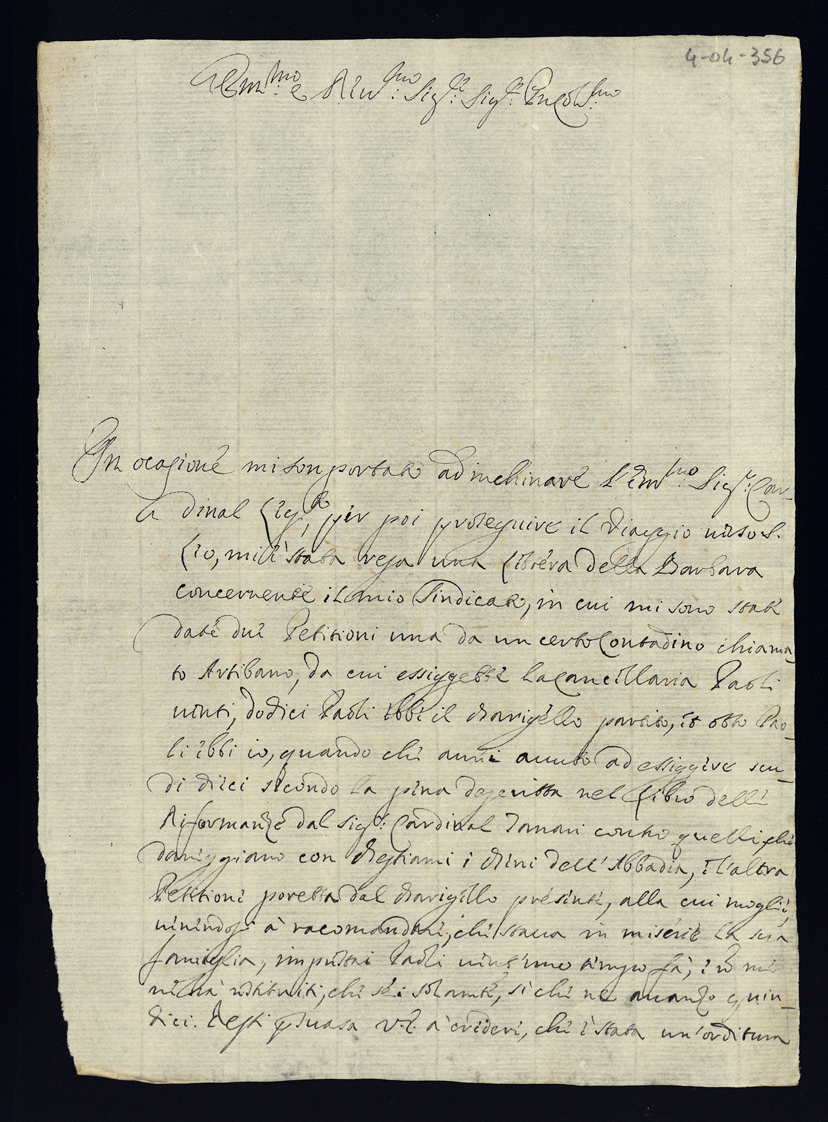 4-04-356
Em.mo e Rev.mo Sig.re Sig.re P.ne Col.mo
In ocasione mi son portato ad inchinare l'Em.mo Sig.r Car-
dinal per poi proseguire il viaggio verso S.
Leo, mi è stata resa una lettera della Barbara
concernente il mio Sindicato, in cui mi sono state
date due Petitioni una da un certo Contadino chiama-
to Artibano, da cui essiggette la Cancellaria Paoli
venti, dodici Paoli ebbe il Barigello partito, et otto Pao-
li ebbi io, quando che avevi avuto ad essiggere scu-
di dieci secondo la pena descritta nel Libro delle
Riformanze dal Sig.r Cardinal contro quelli che
daneggiano con Bestiami i Beni dell'Abbadia, e l'altra
Petitione poretta dal Barigello presente, alla cui moglie,
venendosi à racomandare, che stava in miserie la sua
famiglia, imprestai Paoli vent'uno tempo fà, e non me
ne hà restituiti, che sei solamente, si che ne avanzo quin-
dici. Resti persuasa V.E. à credere, che è stata un'orditura